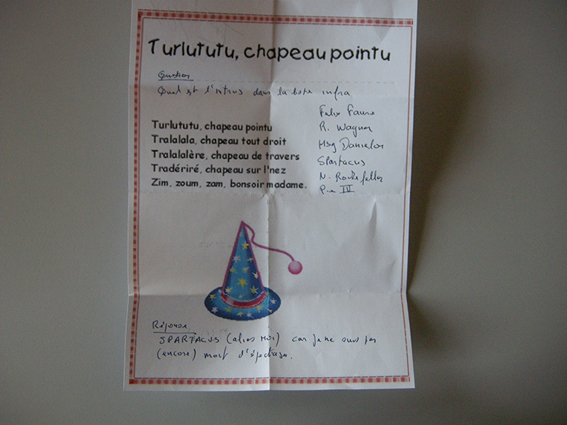 Turlututu, chapeau pointu
Question
Quel est l'intrus dans la liste infra
Felix Faure
Turlututu, chapeau pointu
R. Wagner
Tralalala, chapeau tout droit
Msg Danielou
Tralalalère, chapeau de travers
Spartacus
Tradériré, chapeau sur l'nez
N. Rockefeller
Zim, zoum, zam, bonsoir madame.
Pie IV
Réponse
SPARTACUS (alias moi) car je ne suis pas
(encore) mort d'épectase.